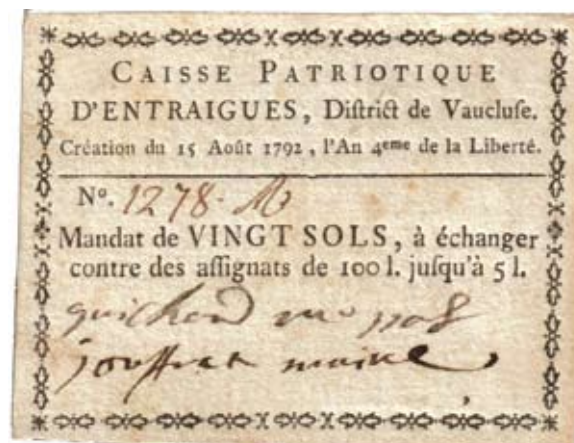 CAISSE PATRIOTIQUE
D'ENTRAIGUES, Diſtrict de Vaucluſe.
Création du 15 Août 1792, l'An 4eme de la Liberté.
No. 1278.
Mandat de VINGT SOLS, à échanger
contre des aſſignats de 100 l. juſqu'à 5 l.
guichard
jouffret maire